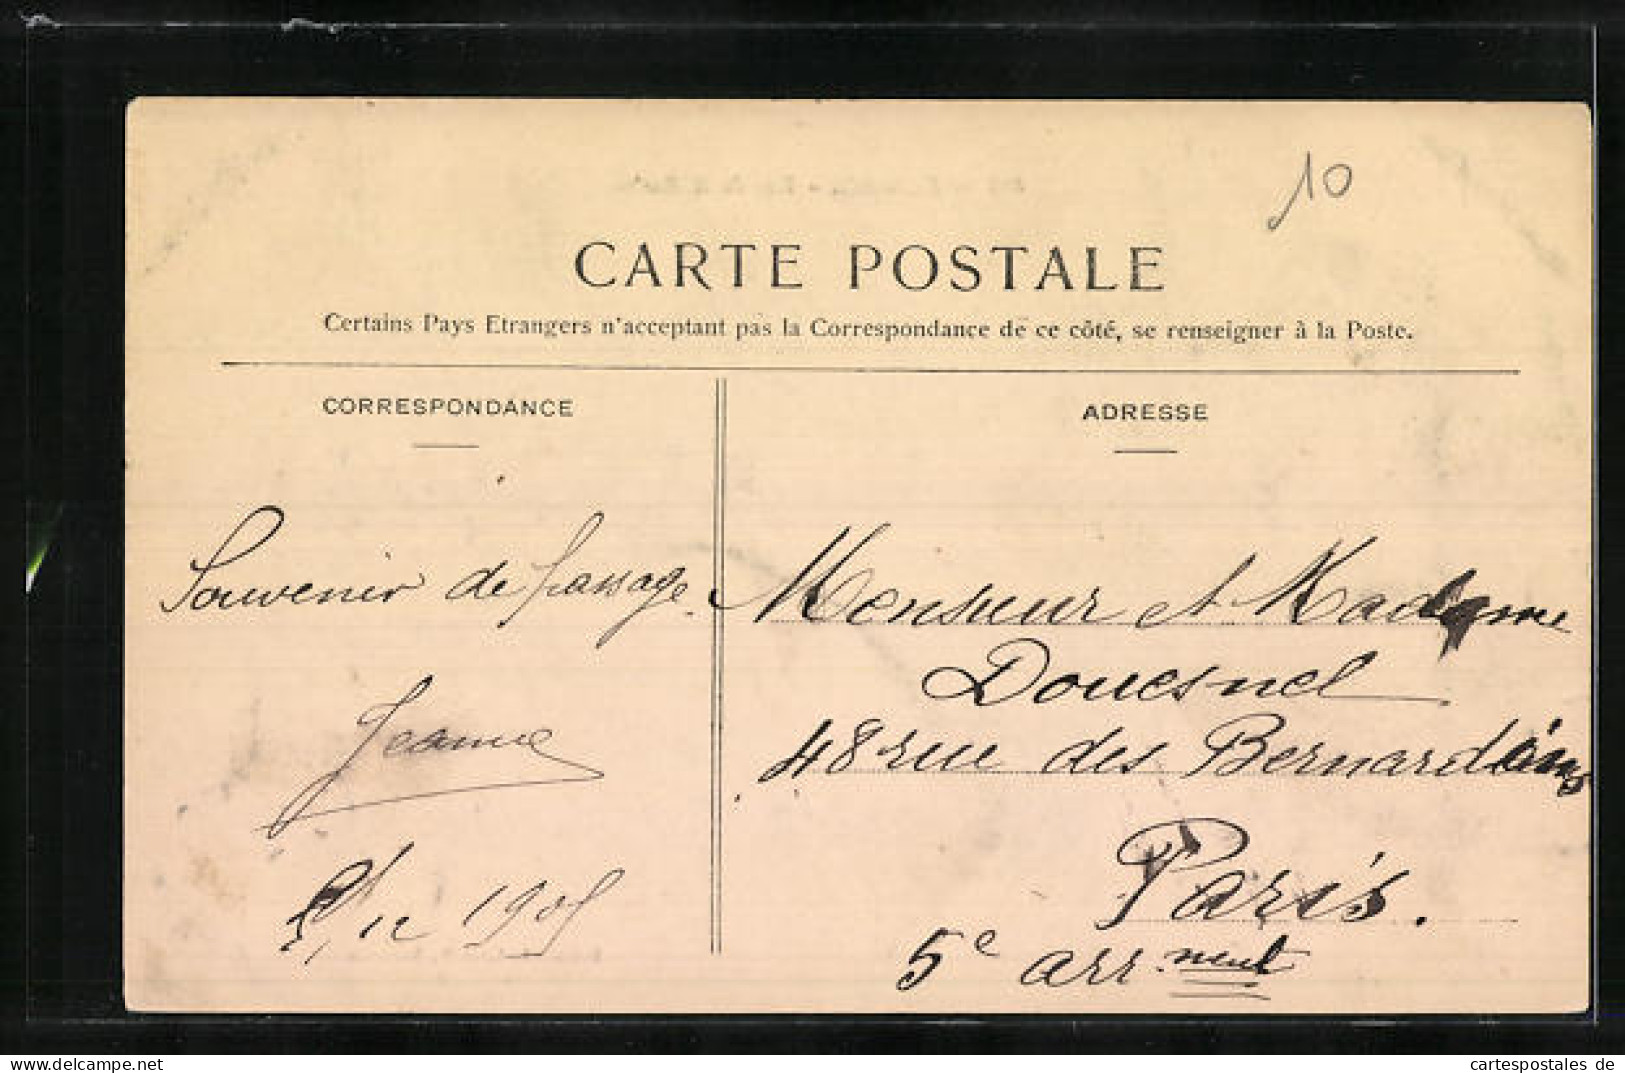 10
CARTE POSTALE
Certains Pays Etrangers n'acceptant pas la Correspondance de ce côté, se renseigner à la Poste.
CORRESPONDANCE
Souvenir de passage.
Jeanne
12 1905
ADRESSE
Monsieur et Madame
Douesnel
48 rue des Bernardins
Paris.
5e arr.ment
cartespostales de